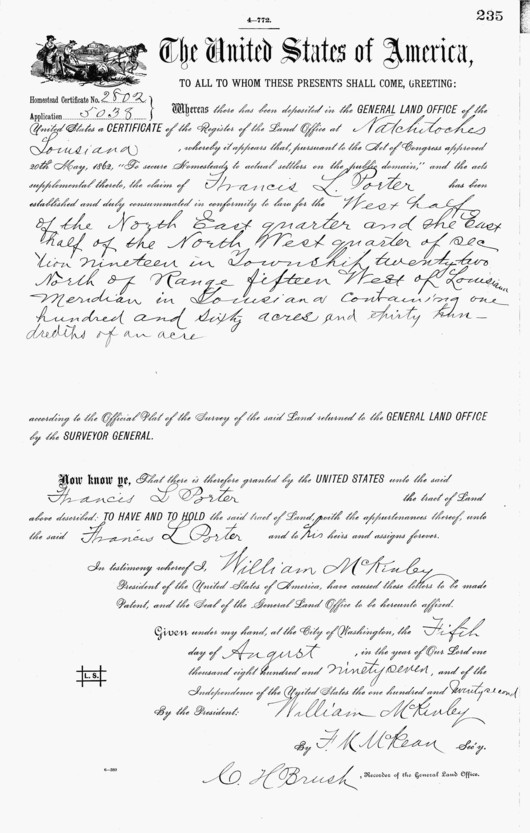 4—772.
235
The United States of America,
TO ALL TO WHOM THESE PRESENTS SHALL COME, GREETING:
Homestead Certificate No. 2802
Application 5038
Whereas there has been deposited in the GENERAL LAND OFFICE of the
United States a CERTIFICATE of the Register of the Land Office at Natchitoches
Louisiana, whereby it appears that, pursuant to the Act of Congress approved
20th May, 1862, "To secure Homesteads to actual settlers on the public domain," and the acts
supplemental thereto, the claim of Francis L. Porter has been
established and duly consummated in conformity to law for the West half
of the North East quarter and the East
half of the North West quarter of sec
tion nineteen in Township twenty two
North of Range fifteen West of Louisiana
Meridian in Louisiana containing one
hundred and sixty acres and thirty hun–
dredths of an acre
according to the Official Plat of the Survey of the said Land returned to the GENERAL LAND OFFICE
by the SURVEYOR GENERAL.
Now know ye, That there is therefore granted by the UNITED STATES unto the said
Francis L Porter the tract of Land
above described: TO HAVE AND TO HOLD the said tract of Land, with the appurtenances thereof, unto
the said Francis L Porter and to his heirs and assigns forever.
In testimony whereof I, William McKinley
President of the United States of America, have caused these letters to be made
Patent, and the Seal of the General Land Office to be hereunto affixed.
Given under my hand, at the City of Washington, the Fifth
day of August, in the year of Our Lord one
thousand eight hundred and ninety seven, and of the
Independence of the United States the one hundred and twenty second
L. S.
By the President: William McKinley
By F. M. McKean Sec'y.
C. H Brush, Recorder of the General Land Office.